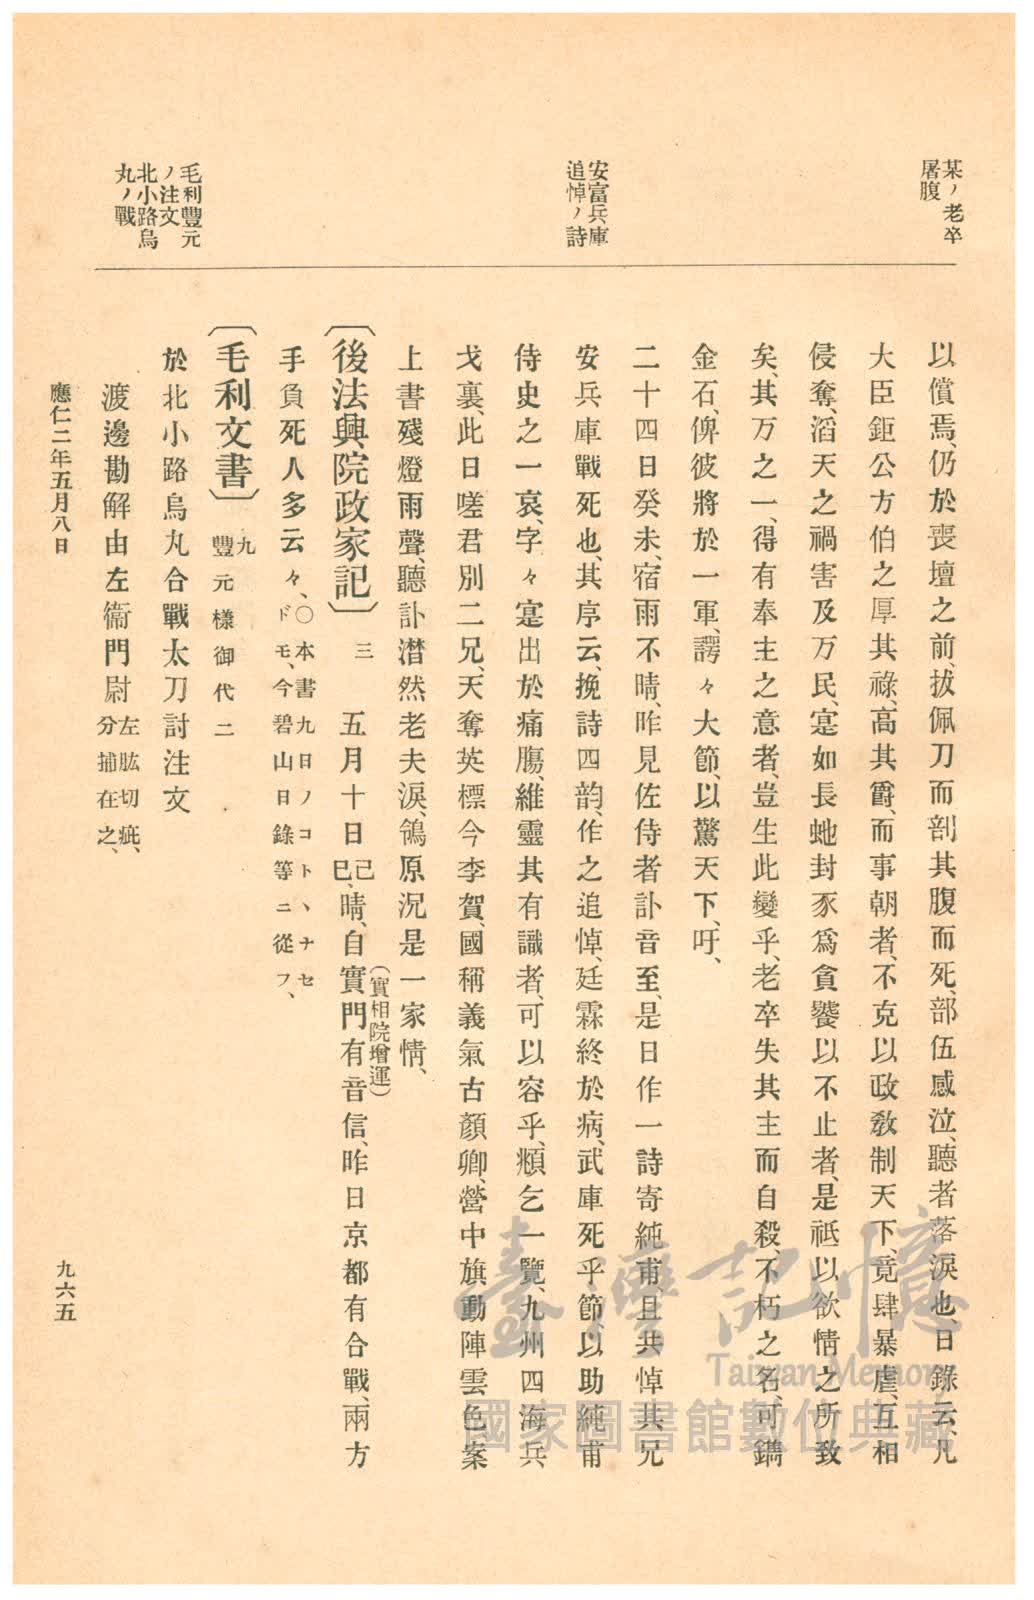 某ノ老卒
屠腹
安富兵庫
追悼ノ詩
毛利豐元
ノ注文
北小路烏
丸ノ戰
以償焉、仍於喪壇之前、拔佩刀而剖其腹而死、部伍感泣、聽者落淚也、日錄云、凡
大臣鉅公方伯之厚其祿、高其爵、而事朝者、不克以政教制天下、竟肆暴虐、互相
侵奪、滔天之禍害及万民、寔如長虵封豕爲貪饕以不止者、是祗以欲情之所致
矣、其万之一、得有奉主之意者、豈生此變乎、老卒失其主而自殺、不朽之名、可鐫
金石、俾彼將於一軍、諤々大節、以驚天下、吁、
二十四日癸未、宿雨不晴、昨見佐侍者訃音至、是日作一詩寄純甫、且共悼其兄
安兵庫戰死也、其序云、挽詩四韵、作之追悼、廷霖終於病、武庫死乎節、以助純甫
侍史之一哀、字々寔出於痛膓、維靈其有識者、可以容乎、頫乞一覽、九州四海兵
戈裏、此日嗟君別二兄、天奪英標今李賀、國稱義氣古顏卿、營中旗動陣雲色案
上書殘燈雨聲、聽訃潸然老夫淚、鴒原况是一家情、
〔後法興院政家記〕 三 五月十日己巳、晴、自實門有音信、昨日京都有合戰、兩方
(實相院增運)
手負死人多云々、〇本書九日ノコトヽナセドモ、今碧山日錄等ニ從フ、
〔毛利文書〕 九 豐元樣御代二
於北小路烏丸合戰太刀討注文
渡邊勘解由左衞門尉 左肱切疵、分捕在之、
應仁二年五月八日
九六五
臺灣記憶
Taiwan Memory
國家圖書館數位典藏